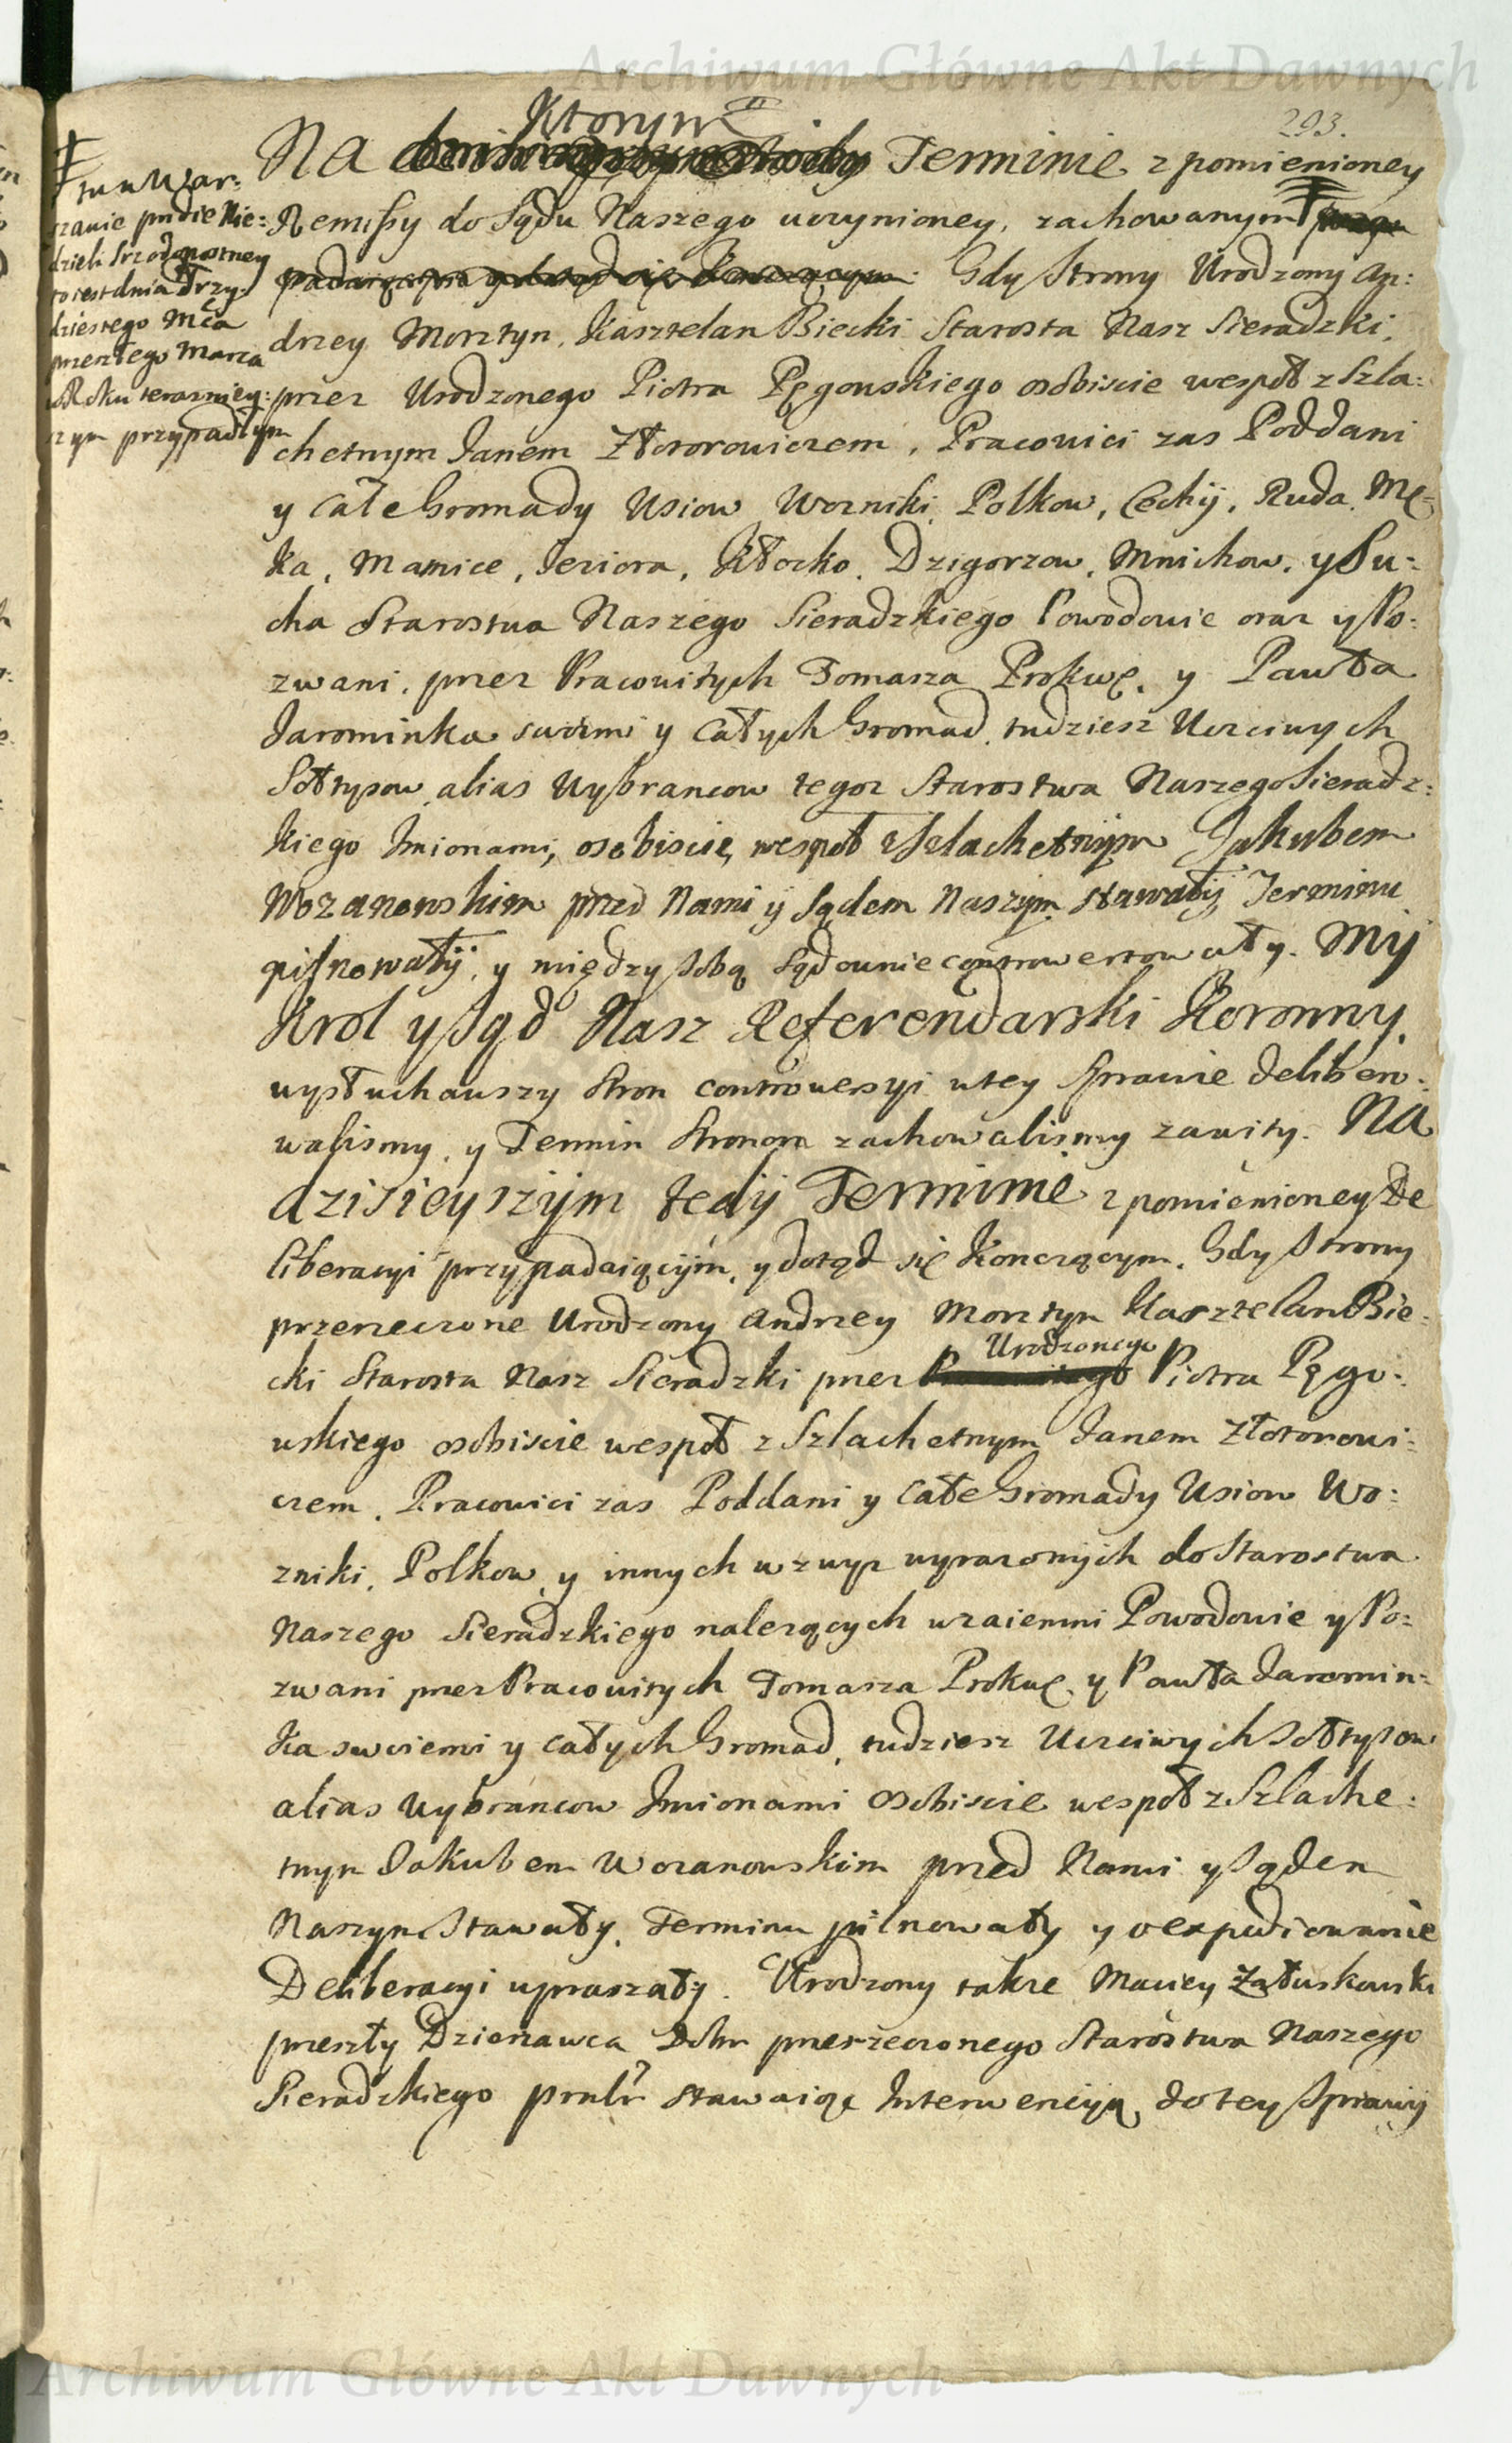 Archiwum Główne Akt Dawnych
293.
Ktorym
Na Terminie z pomienioney
Remissy do Sądu Naszego uczynioney, zachowanym
Gdy Strony Urodzony An:
drzey Morztyn, Kasztelan Biecki Starosta Nasz Sieradzki,
przez Urodzonego Piotra Pęgowskiego osobiscie wespoł z Szla:
chetnym Janem Złotorowiczem, Pracowici zas Poddani
y Całe Gromady Usiow, Wozniki, Polkow, Cechij, Ruda, Mę:
ka, Mamice, Jeziora, Kłocko, Dzigorzow, Mnichow, y Su:
cha Starostwa Naszego Sieradzkiego Powodowie oraz y Po:
zwani, przez Pracowitych Tomasza Prokwę, y Pawła
Jarominka swoimi y Całych Gromad, tudziesz Uczciwych
Sołtysow alias Wybrancow tegoz Starostwa Naszego Sieradz:
kiego Imionami, osobiscie, wespoł z Szlachetnijm Jakubem
Wozanowskim przed Nami ij Sądem Naszijm stawałij, Terminu
pilnowałij, y między sobą sądownie controwertowały. Mij
Krol y Sąd Nasz Referendarski Koronny,
wysłuchawszy Stron controwersyi w tey Sprawie delibero:
walismy, y Termin Stronom zachowalismy zawity. Na
dzisieyszijm tedij Terminie z pomienioney De
liberacyi przypadaiącijm, y dotąd się Konczącym, Gdy Strony
przerzeczone Urodzony Andrzey Morztyn Kasztelan Bie:
Urodzonego
cki Starosta Nasz Sieradzki przez Piotra Pęgo:
wskiego osobiscie wespoł z Szlachetnym Janem Złotorowi:
czem, Pracowici zas Poddani y Całe Gromady Usiow Wo:
zniki, Polkow, y innych wzwyz wyrazonijch do Starostwa
Naszego Sieradzkiego nalezących wzaiemni Powodowie y Po:
zwani przez Pracowitych Tomasza Prokwę, y Pawła Jaromin:
ka swoiemi y całych Gromad, tudziesz Uczciwych Sołtysow
alias Wybrancow Imionami osobiscie wespoł z Szlache:
tnym Jakubem Wozanowskim przed Nami y Sądem
Naszym Stawały, Terminu pilnowały y o expediowanie
Deliberacyi upraszały. Urodzony takze Maciey Załuskowski
przeszły Dzierzawca Dobr przerzeczonego Starostwa Naszego
Sieradzkiego stawaiąc Interwencyą do tey Sprawij
tu w War:
szawie po
dzieli Srzodopostney
to iest dnia Trzy:
dziestego Mca
przeszłego Marca
w Roku terazniey:
szym przypadłym
Archiwum Główne Akt Dawnych